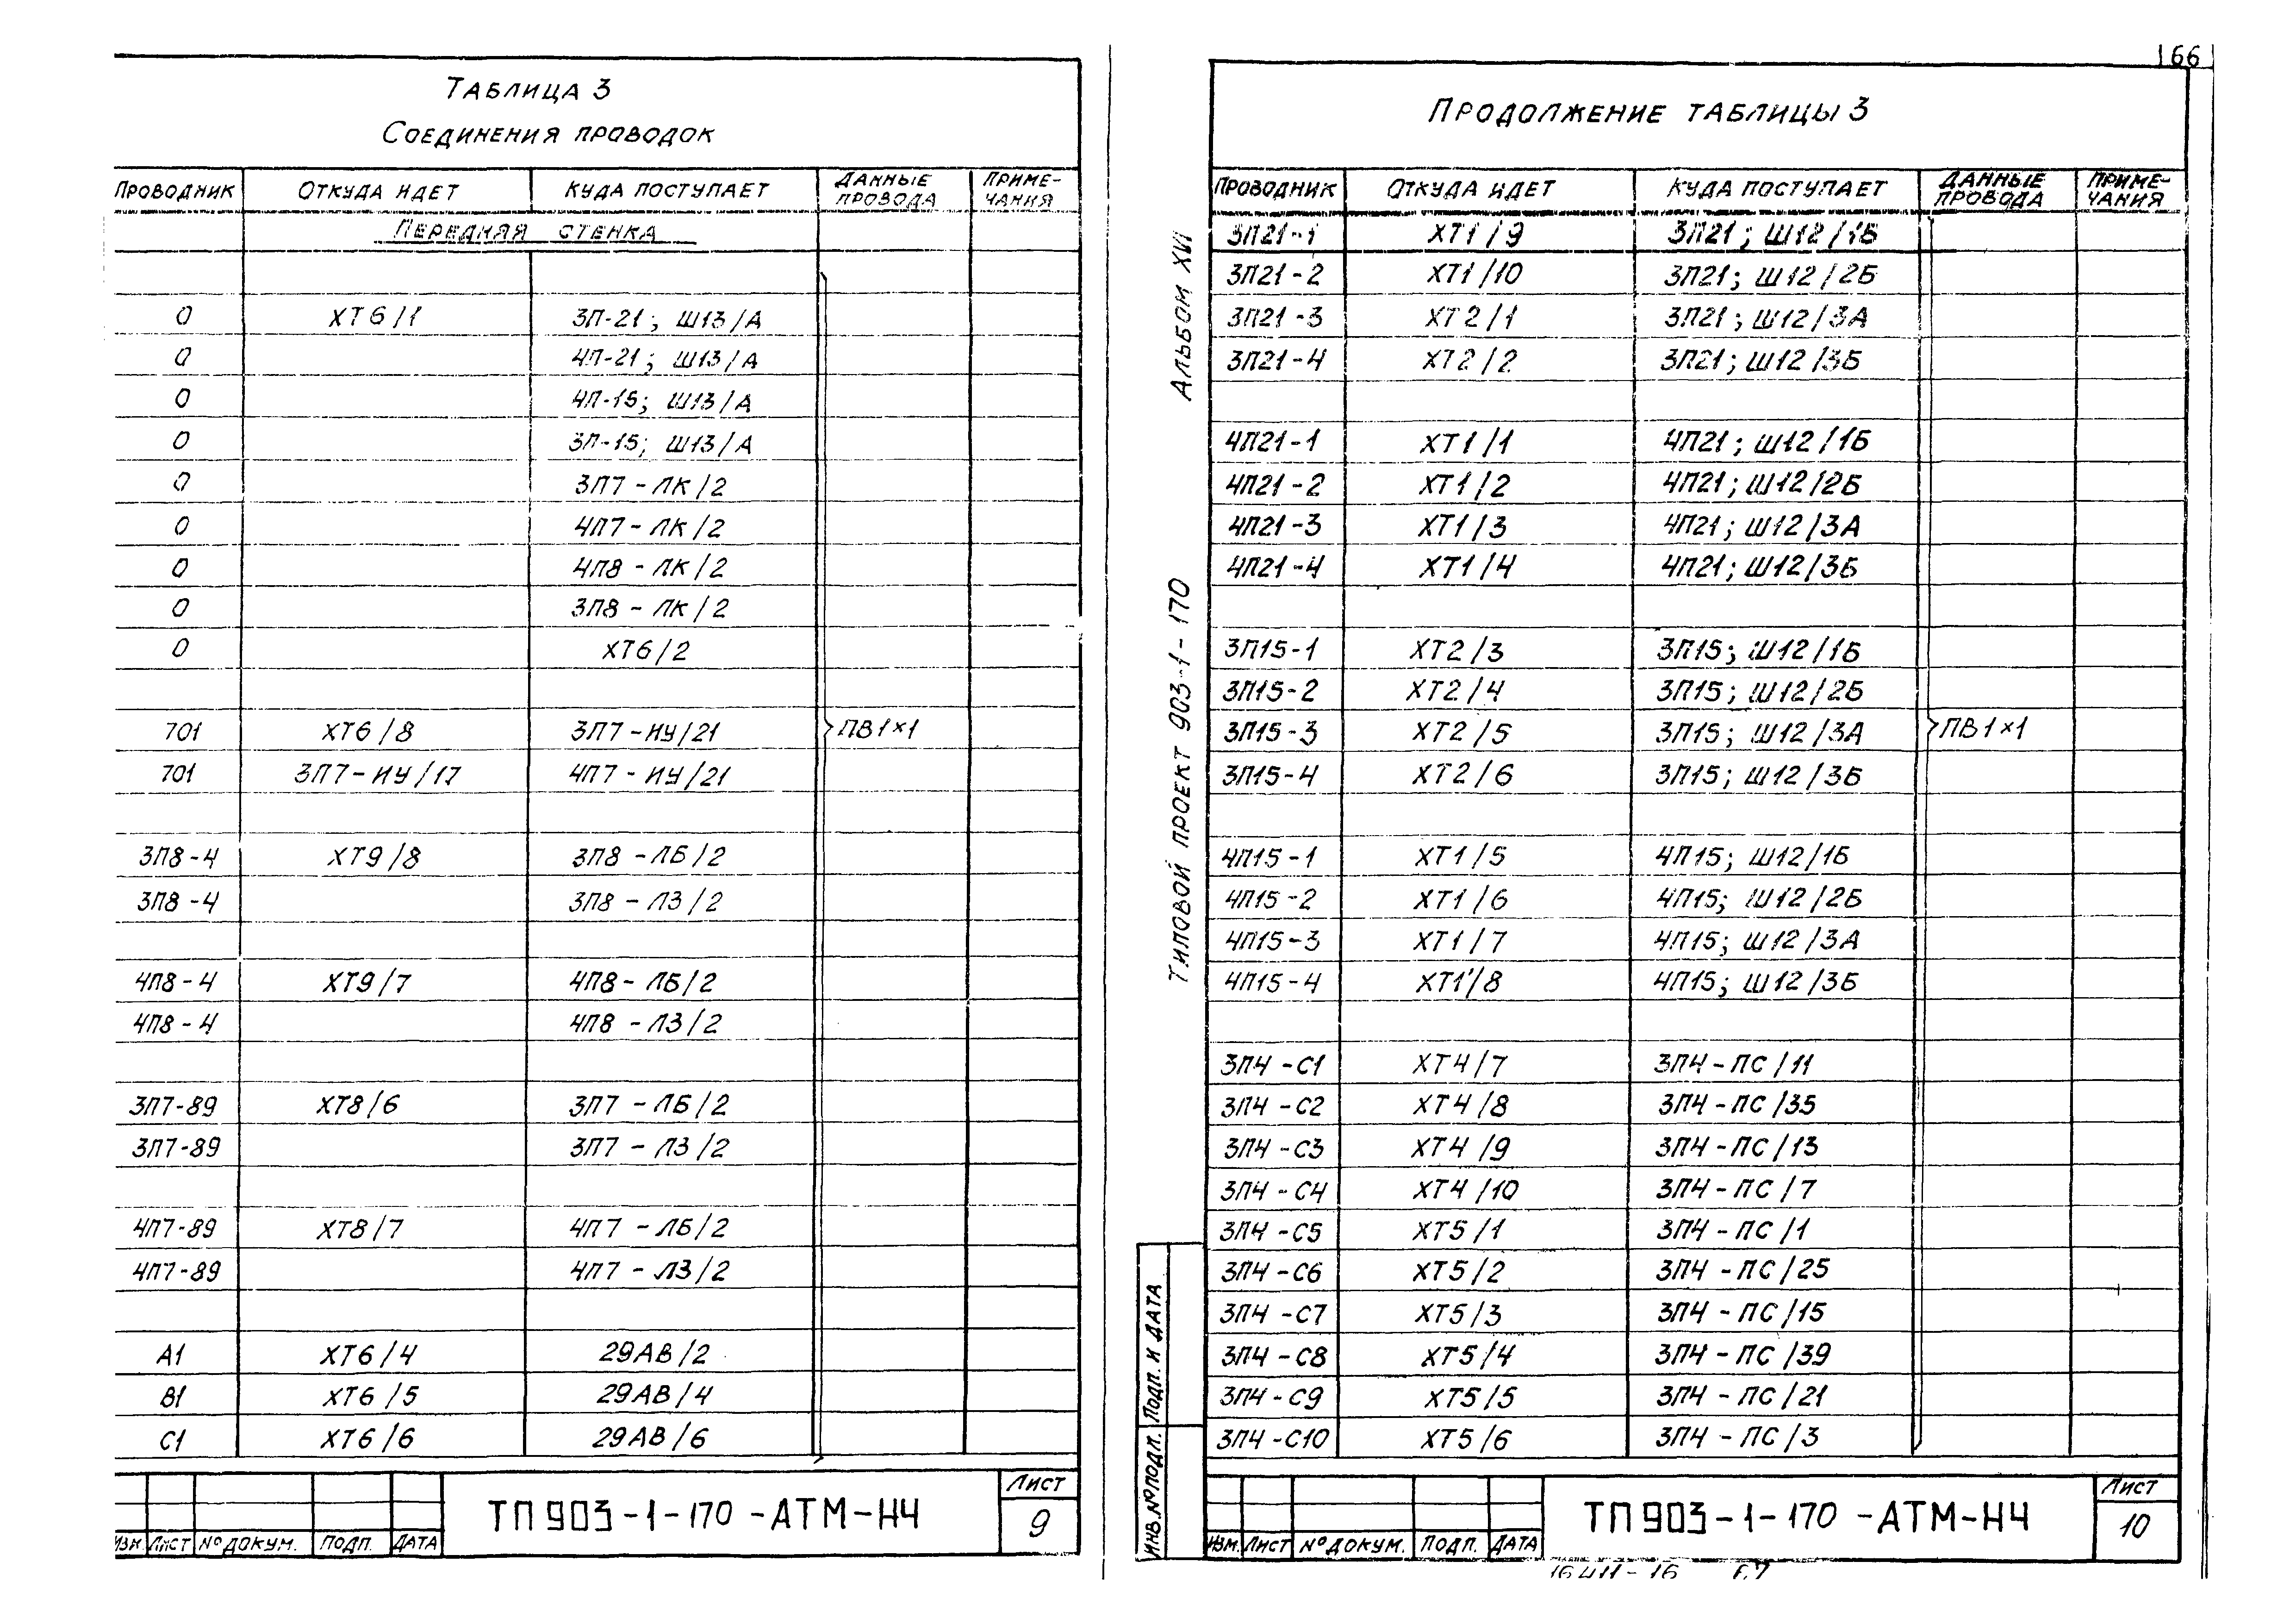 166
Таблица 3
Соединения проводок
Проводник Откуда идет Куда поступает Данные провода Примечания
Передняя стенка
0 ХТ6/1 3П-21; Ш13/А
0 4П-21; Ш13/А
0 4П-15; Ш13/А
0 3П-15; Ш13/А
0 3П7-ЛК/2
0 4П7-ЛК/2
0 4П8-ЛК/2
0 3П8-ЛК/2
0 ХТ6/2
701 ХТ6/8 3П7-ИУ/21 ПВ1×1
701 3П7-ИУ/17 4П7-ИУ/21
3П8-4 ХТ9/8 3П8-ЛБ/2
3П8-4 3П8-ЛЗ/2
4П8-4 ХТ9/7 4П8-ЛБ/2
4П8-4 4П8-ЛЗ/2
3П7-89 ХТ8/6 3П7-ЛБ/2
3П7-89 3П7-ЛЗ/2
4П7-89 ХТ8/7 4П7-ЛБ/2
4П7-89 4П7-ЛЗ/2
А1 ХТ6/4 29АВ/2
В1 ХТ6/5 29АВ/4
С1 ХТ6/6 29АВ/6
Изм. Лист № докум. Подп. Дата
ТП 903-1-170-АТМ-Н4
Лист
9
Альбом XVI
Типовой проект 903-1-170
Подп. и дата
Инв. № подл.
Продолжение таблицы 3
Проводник Откуда идет Куда поступает Данные провода Примечания
3П21-1 ХТ1/9 3П21; Ш12/1Б
3П21-2 ХТ1/10 3П21; Ш12/2Б
3П21-3 ХТ2/1 3П21; Ш12/3А
3П21-4 ХТ2/2 3П21; Ш12/3Б
4П21-1 ХТ1/1 4П21; Ш12/1Б
4П21-2 ХТ1/2 4П21; Ш12/2Б
4П21-3 ХТ1/3 4П21; Ш12/3А
4П21-4 ХТ1/4 4П21; Ш12/3Б
3П15-1 ХТ2/3 3П15; Ш12/1Б
3П15-2 ХТ2/4 3П15; Ш12/2Б
3П15-3 ХТ2/5 3П15; Ш12/3А ПВ1×1
3П15-4 ХТ2/6 3П15; Ш12/3Б
4П15-1 ХТ1/5 4П15; Ш12/1Б
4П15-2 ХТ1/6 4П15; Ш12/2Б
4П15-3 ХТ1/7 4П15; Ш12/3А
4П15-4 ХТ1/8 4П15; Ш12/3Б
3П4-С1 ХТ4/7 3П4-ПС/11
3П4-С2 ХТ4/8 3П4-ПС/35
3П4-С3 ХТ4/9 3П4-ПС/13
3П4-С4 ХТ4/10 3П4-ПС/7
3П4-С5 ХТ5/1 3П4-ПС/1
3П4-С6 ХТ5/2 3П4-ПС/25
3П4-С7 ХТ5/3 3П4-ПС/15
3П4-С8 ХТ5/4 3П4-ПС/39
3П4-С9 ХТ5/5 3П4-ПС/21
3П4-С10 ХТ5/6 3П4-ПС/3
Изм. Лист № докум. Подп. Дата
ТП 903-1-170-АТМ-Н4
Лист
10